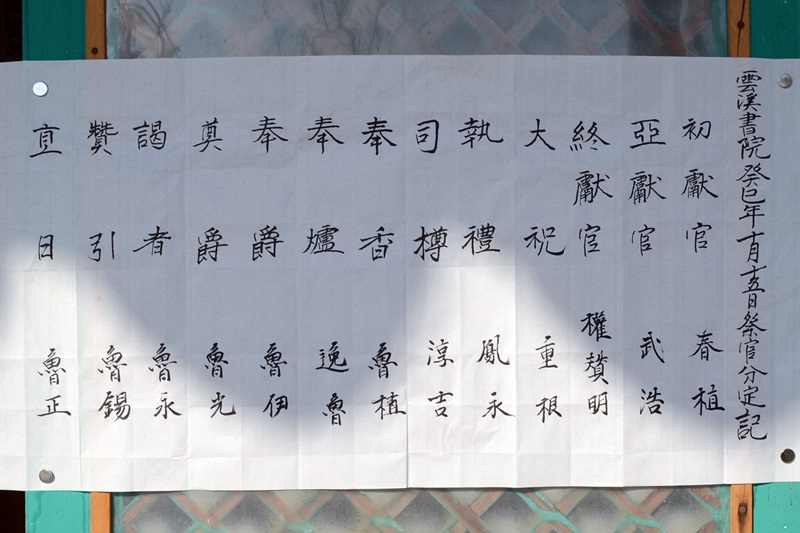 雲溪書院癸巳年十月十五日祭官分定記
初獻官 春植
亞獻官 武浩
終獻官 權贊明
大祝 重根
執禮 鳳永
司樽 淳吉
奉香 魯植
奉爐 逸魯
奉爵 魯伊
奠爵 魯光
謁者 魯永
贊引 魯錫
直日 魯正